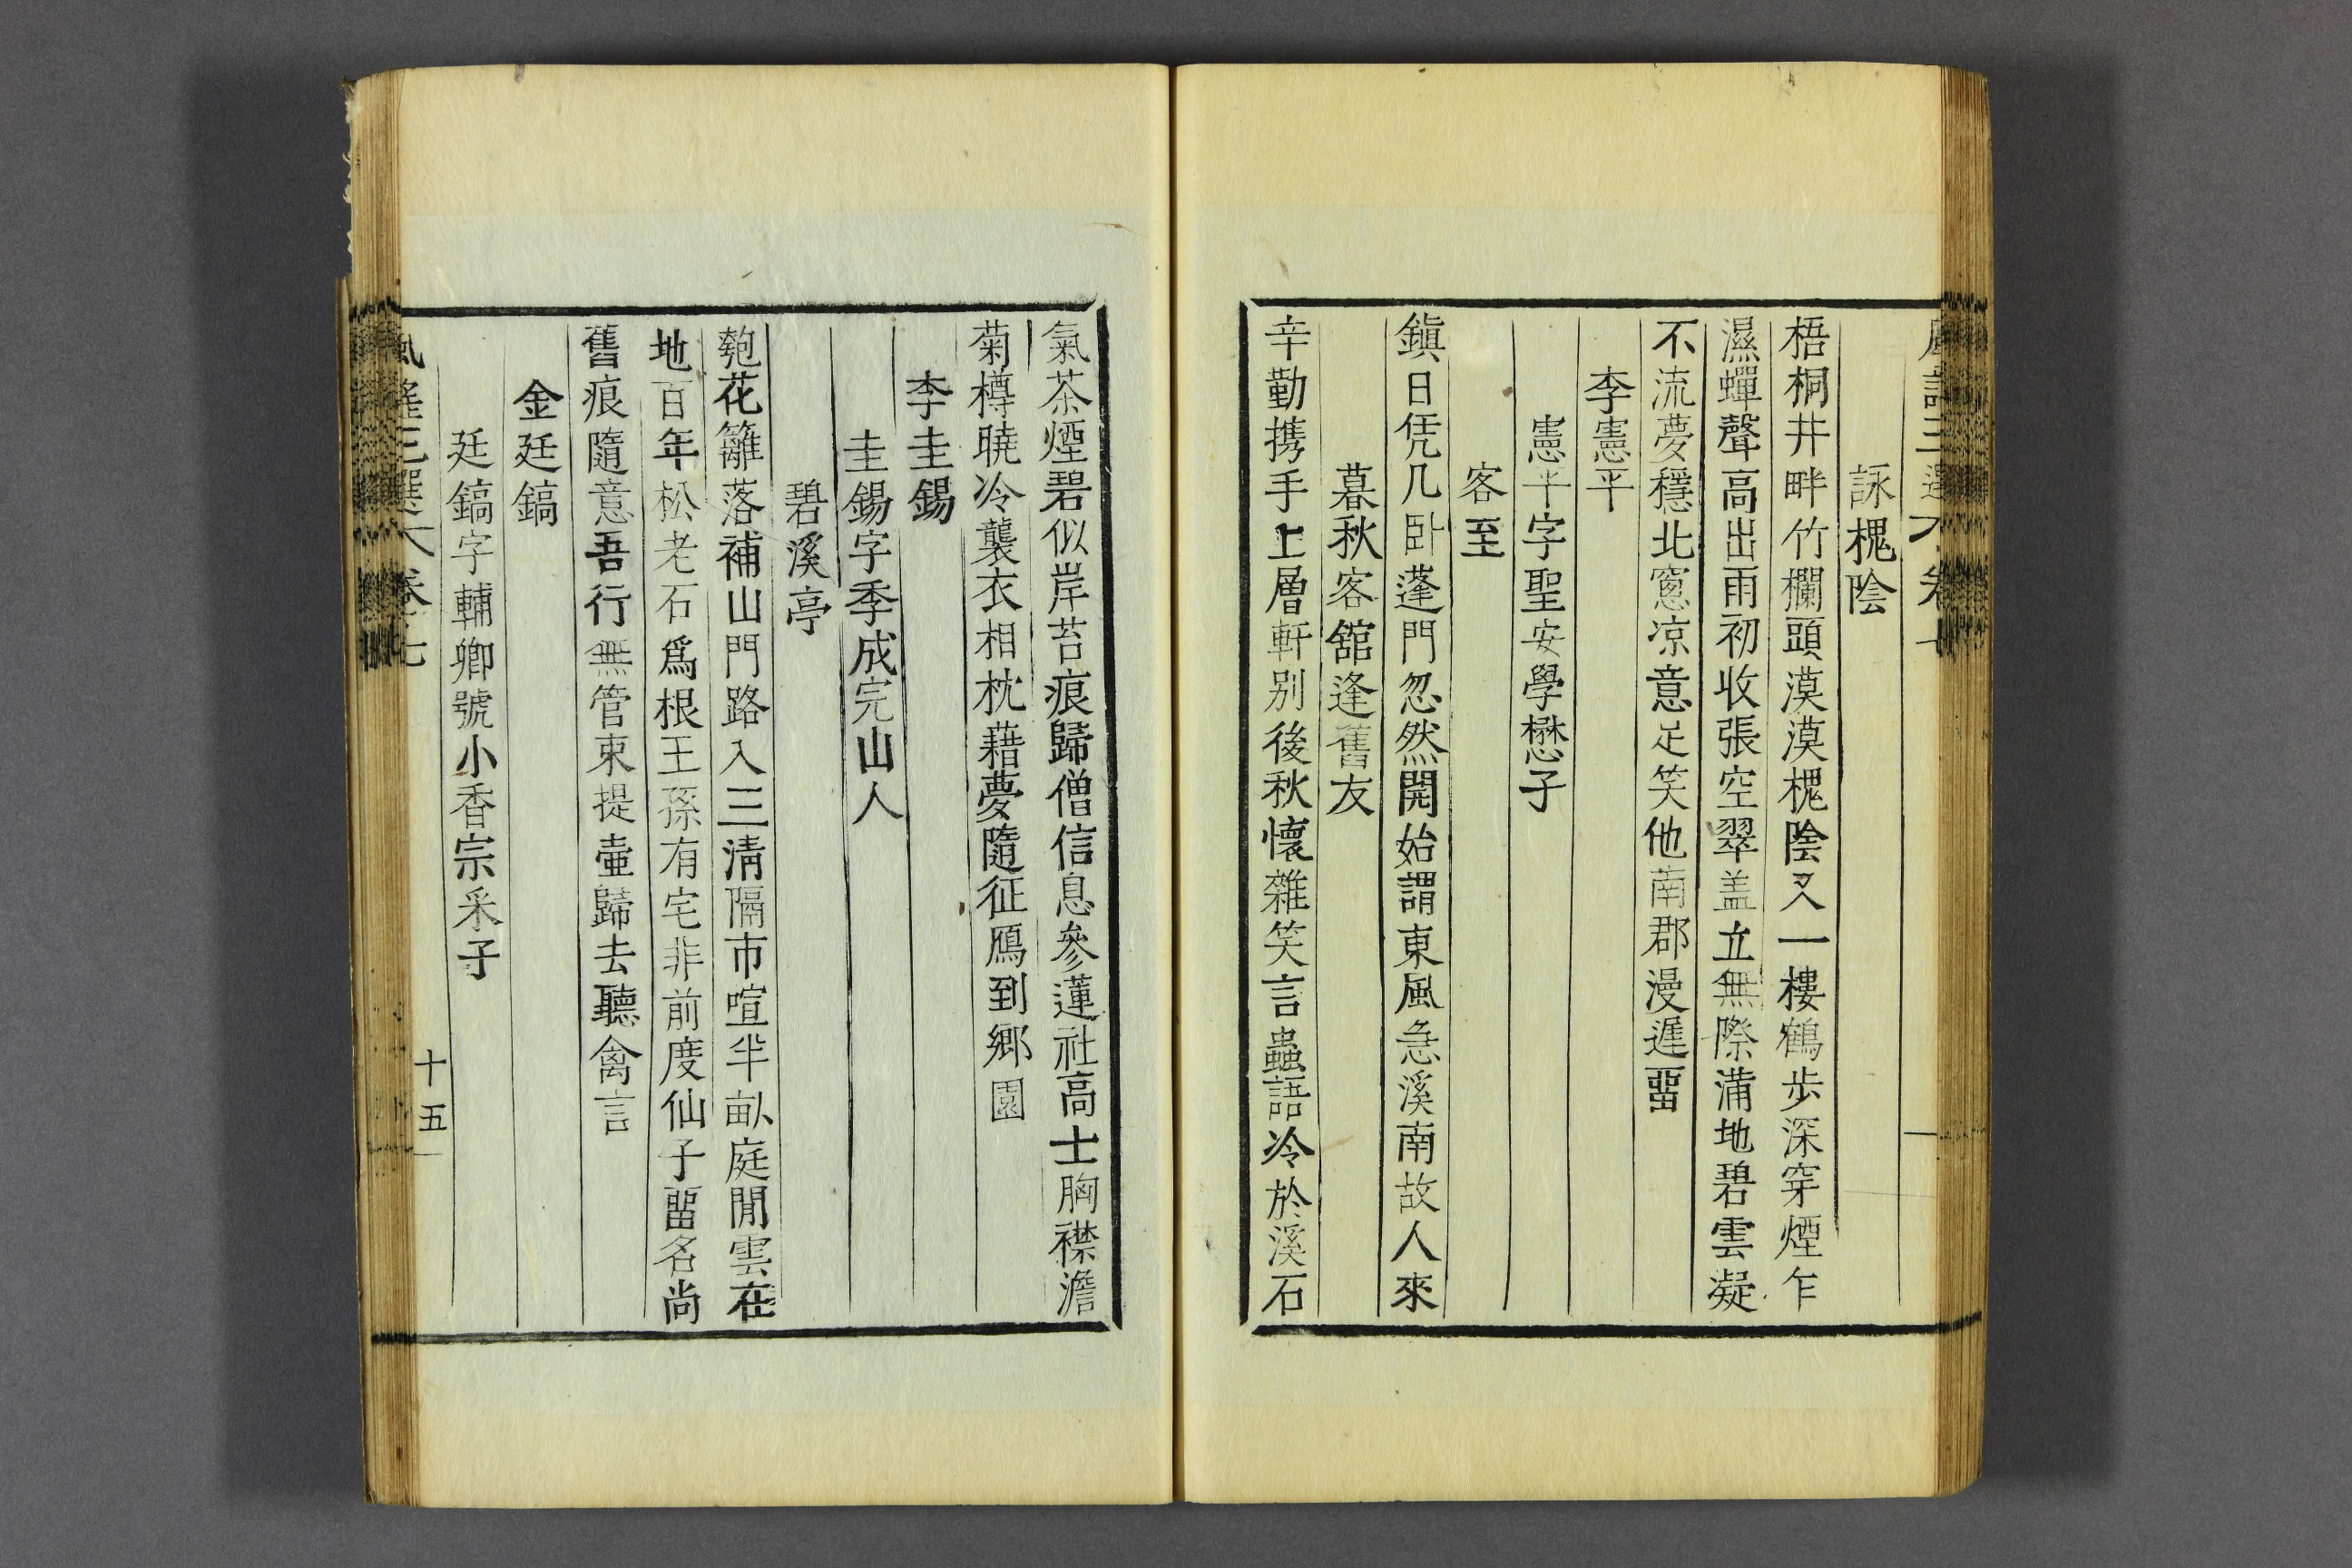 風謠三選 卷七
詠槐陰
梧桐井畔竹欄頭漠漠槐陰又一樓鶴步深穿煙乍
濕蟬聲高出雨初收張空翠盖立無際蒲地碧雲凝
不流夢穩北窓凉意足笑他南郡漫遲畱
李憲平
憲平字聖安學懋子
客至
鎭日凭几卧蓬門忽然開始謂東風急溪南故人來
暮秋客舘逢舊友
辛勤携手上層軒別後秋懷雜笑言蟲語冷於溪石
氣茶煙碧似岸苔痕歸僧信息參蓮社高士胸襟澹
菊樽曉冷襲衣相枕藉夢隨征鴈到鄉園
李圭錫
圭錫字季成完山人
碧溪亭
匏花籬落補山門路入三淸隔市喧半畝庭閒雲在
地百年松老石爲根王孫有宅非前度仙子畱名尚
舊痕隨意吾行無管束提壷歸去聽禽言
金廷鎬
廷鎬字輔卿號小香宗釆子
風謠三選 卷七
十五